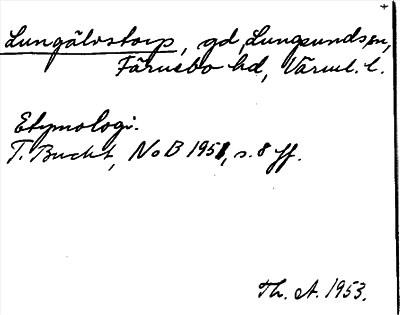 Lungälvstorp, gd, Lungsunds sn,
Färnebo hd, Värml. l.
Etymologi.
T. Bucht, NoB 1951, s. 8 ff.
Th. A. 1953.